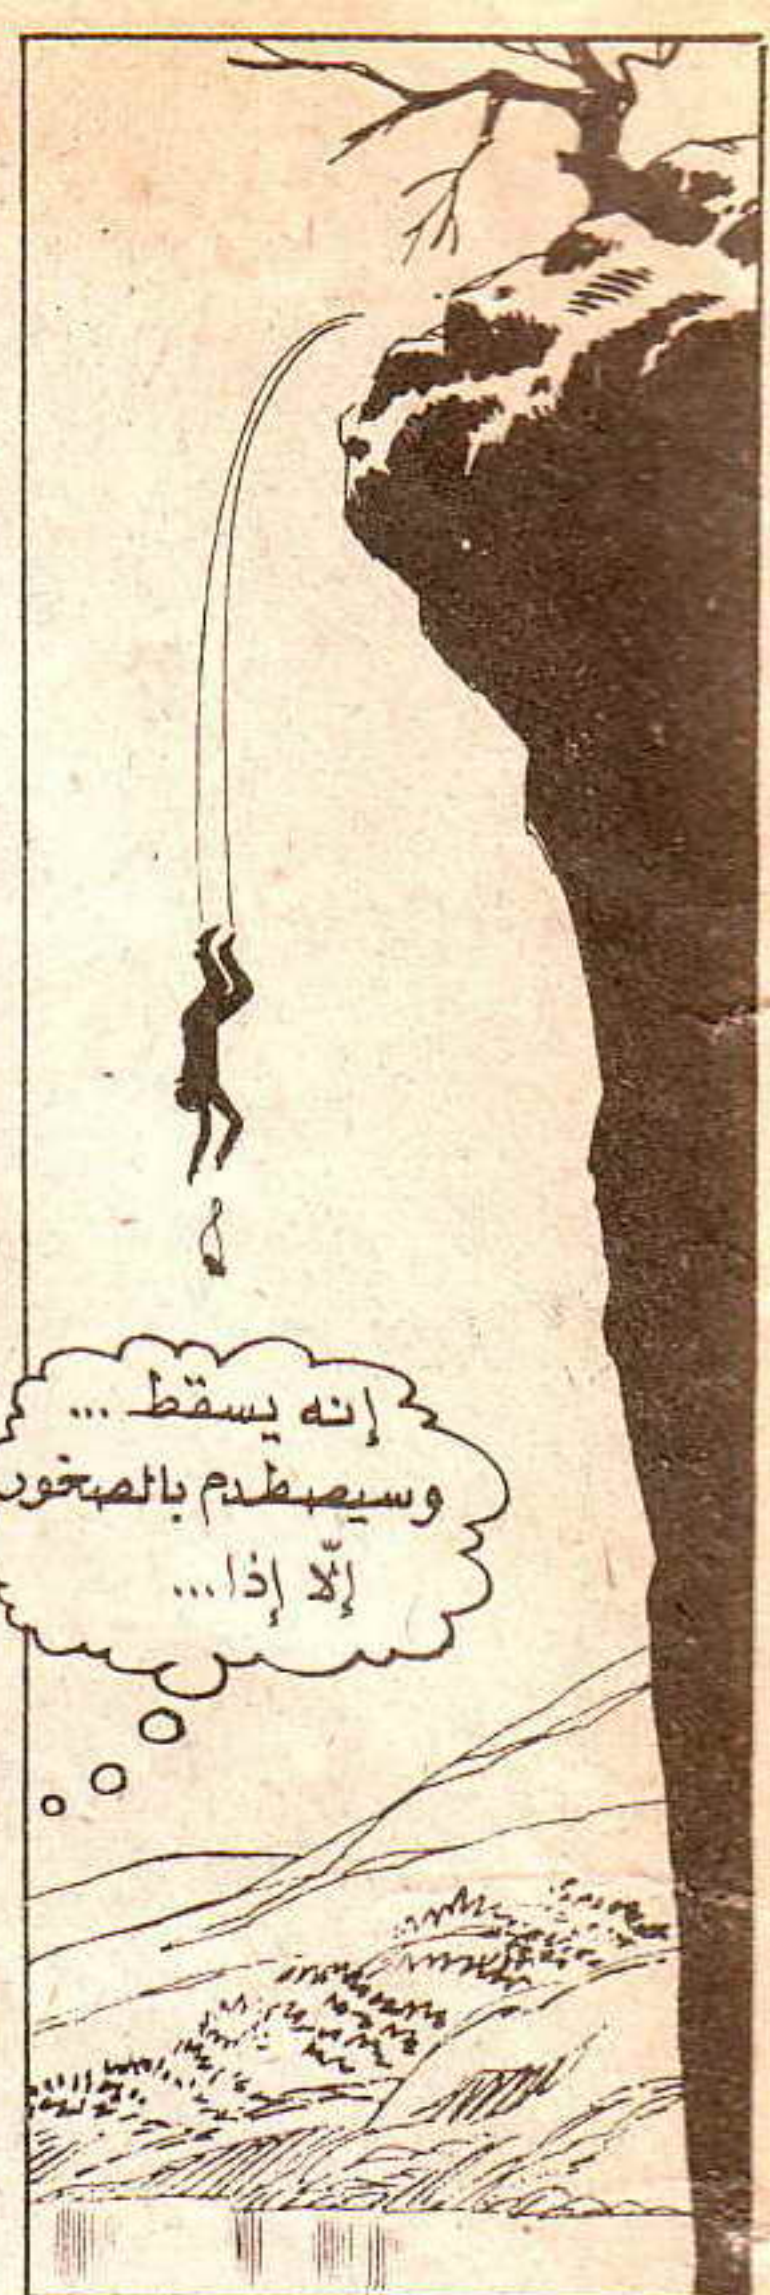 إنه يسقط ...
وسيصطدم بالصخور
إلّا إذا...